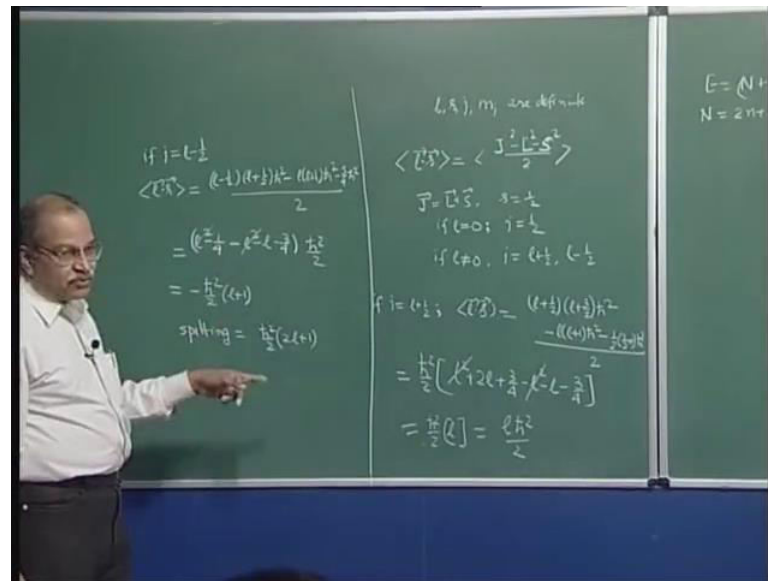 if j=l-½
<L⃗·S⃗> = (l-½)(l+½)ħ² - l(l+1)ħ² - ¾ħ² / 2
= (l² - ¼ - l² - l - ¾) ħ²/2
= - ħ²/2 (l+1)
= ħ²/2 (2l+1)
l, s, j, mj are definite
<L⃗·S⃗> = < J² - L² - S² / 2 >
J⃗ = L⃗+S⃗, s=½
if l=0; j=½
if l≠0, j = l+½, l-½
if j = l+½; <L⃗·S⃗> = (l+½)(l+3/2)ħ²
- l(l+1)ħ² - ½(3/2)ħ² / 2
= ħ²/2 [l² + 2l + ¾ - l² - l - ¾]
= ħ²/2 [l] = lħ²/2
E = (N+
N = 2n+